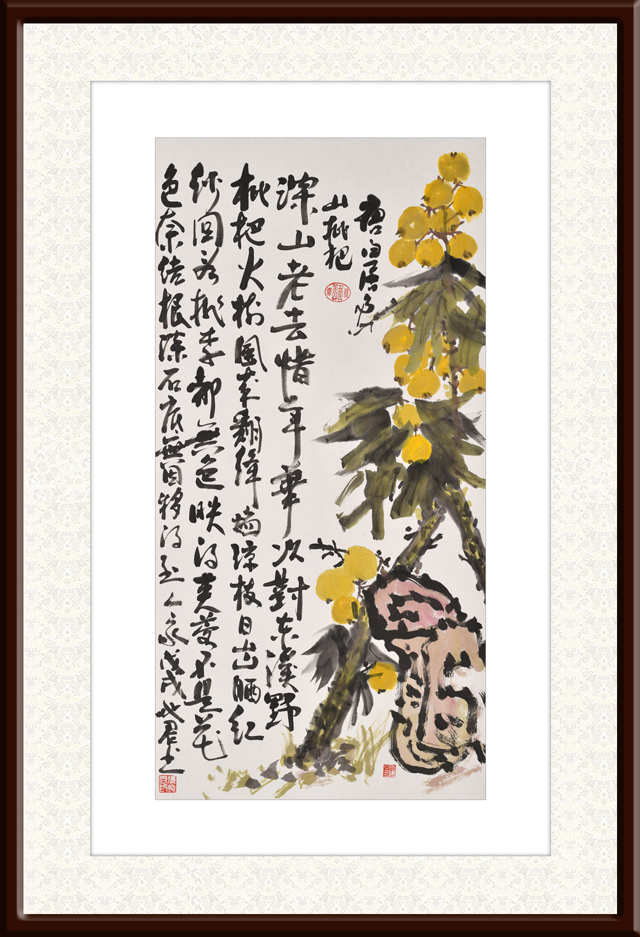 唐白居易
山枇杷
深山老去惜年華況對東溪野
枇杷火樹風來翻絳焰瓊枝日出晒紅
紗回看桃李都無色映得芙蓉不是花
争奈結根深石底無因移得到人家戊戌